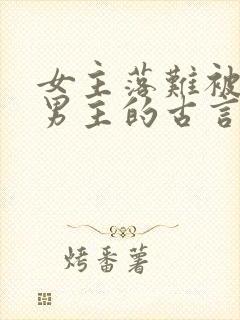 女主落難被
男主的古言
烤番薯